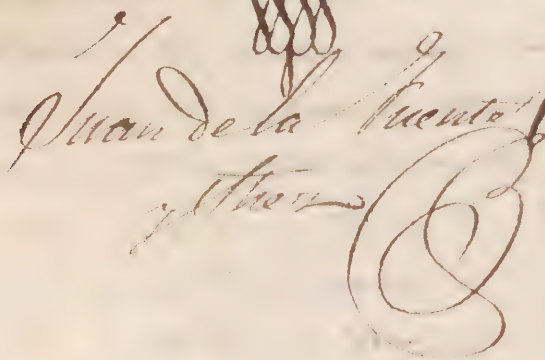 Juan de la Fuente
y